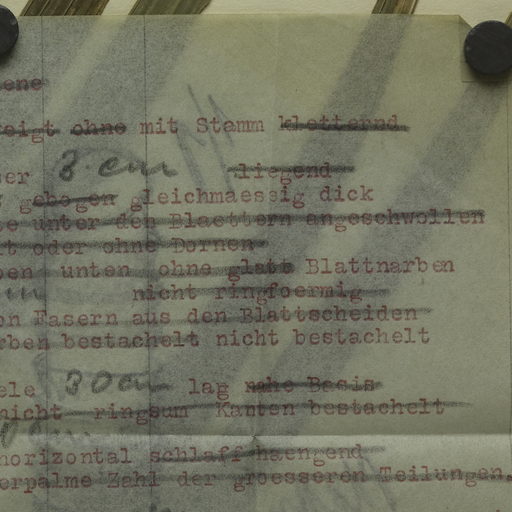 ene
eigt ohne mit Stamm kletternd
er 8 cm liegend
gebogen gleichmaessig dick
e unter den Blaettern angeschwollen
t oder ohne Dornen
ben unten ohne glatt Blattnarben
nicht ringfoermig
on Fasern aus den Blattscheiden
rben bestachelt nicht bestachelt
ele 30 cm lag nahe Basis
nicht ringsum Kanten bestachelt
horizontal schlaff haengend
erpalme Zahl der groesseren Teilungen.